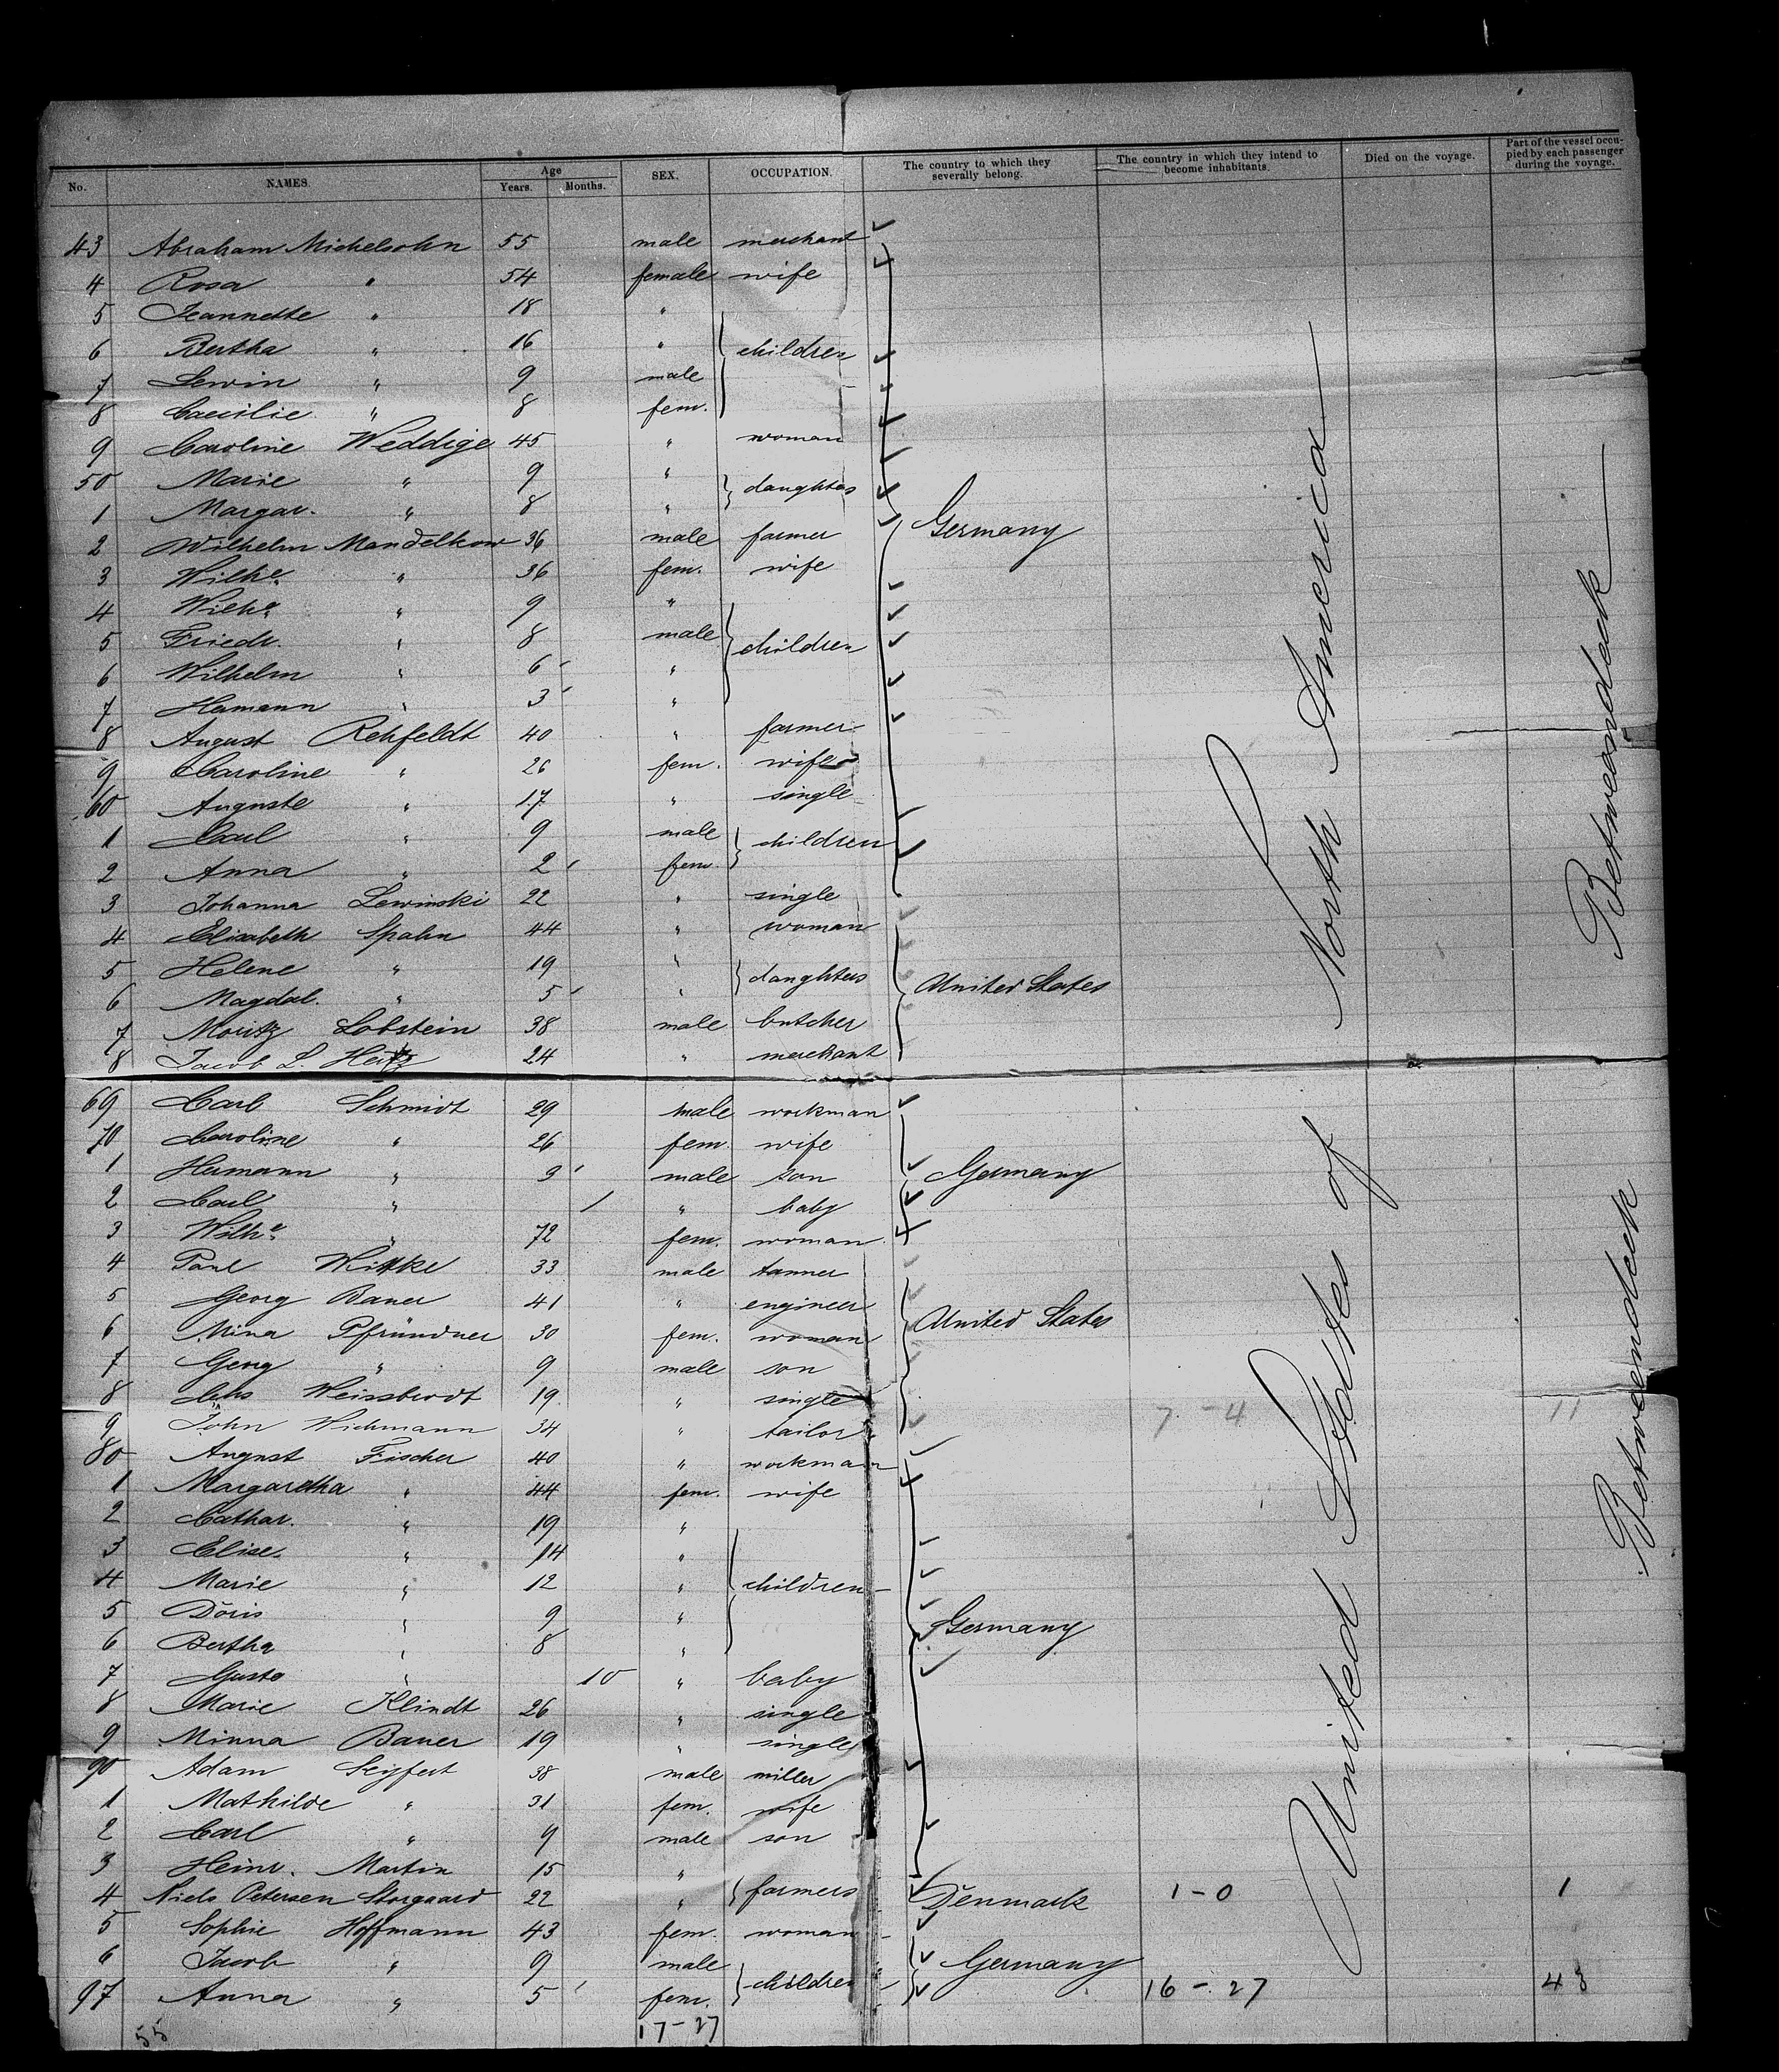 No. NAMES. Age Years. Months. SEX. OCCUPATION. The country to which they severally belong. The country in which they intend to become inhabitants. Died on the voyage. Part of the vessel occupied by each passenger during the voyage.
43 Abraham Michelsohn 55 male merchant
4 Rosa " 54 female wife
5 Jeannette " 18 "
6 Bertha " 16 " children
7 Lewin " 9 male
8 Caecilie " 8 fem.
9 Caroline Weddige 45 " woman
50 Marie " 9 " daughters
1 Margar. " 8 " Germany
2 Wilhelm Mandelkow 36 male farmer
3 Wilhe. " 36 fem. wife
4 Wilhe. " 9 "
5 Friedr. " 8 male children
6 Wilhelm " 6 "
7 Hermann " 3 "
8 August Rehfeldt 40 " farmer
9 Caroline " 26 fem. wife
60 Auguste " 17 " single
1 Carl " 9 male children
2 Anna " 2 fem
3 Johanna Lewinski 22 " single
4 Elisabeth Spahn 44 " woman
5 Helene " 19 " daughters United States
6 Magdal. " 5 "
7 Moritz Lobstein 38 male butcher
8 Jacob L. Hertz 24 " merchant
69 Carl Schmidt 29 male workman
70 Caroline " 26 fem. wife
1 Hermann " 3 male son Germany
2 Carl " 1 " baby
3 Wilhe. " 72 fem. woman
4 Paul Wittke 33 male tanner
5 Georg Bauer 41 " engineer United States
6 Mina Pfründner 30 fem. woman
7 Georg " 9 male son
8 Chs Weissbrodt 19 " single 7 - 4 11
9 John Wichmann 34 " tailor
80 August Fischer 40 " workman
1 Margaretha " 44 fem. wife
2 Cathar. " 19 "
3 Elise " 14 "
4 Marie " 12 " children
5 Doris " 9 " Germany
6 Bertha " 8 "
7 Guste " 10 " baby
8 Marie Klindt 26 " single
9 Minna Bauer 19 " single
90 Adam Seyfert 38 male miller
1 Mathilde " 31 fem. wife
2 Carl " 9 male son
3 Heinr. Martin 15 "
4 Niels Petersen Storgaard 22 " farmers Denmark 1 - 0 1
5 Sophie Hoffmann 43 fem. woman
6 Jacob " 9 male Germany
97 Anna " 5 fem. children 16 - 27 43
55 17 - 27
United States of North America
Betweendeck
Betweendeck